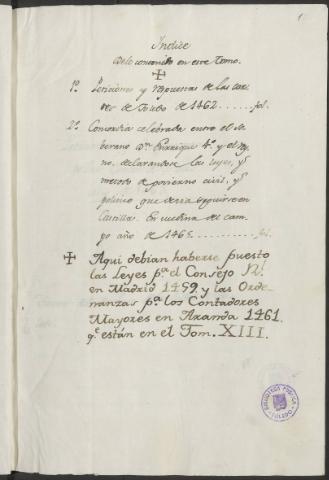 1
Indice
de lo contenido en este Tomo.
1º. Peticiones y respuestas de las cor-
tes de Toledo de 1462......fol.
2º. Concordia celebrada entre el So-
berano Dn. Enrrique 4º. y el Rey-
no, declarandose las leyes, y
metodo de govierno civil, y
politico que devia seguirse en
Castilla. En medina del cam-
po año de 1465......fol.
Aqui debian haberse puesto
las Leyes pª. el Consejo Rl.
en Madrid 1459 y las Orde-
nanzas pª. los Contadores
Mayores en Aranda 1461.
qe. están en el Tom. XIII.
BIBLIOTECA PUBLICA
TOLEDO